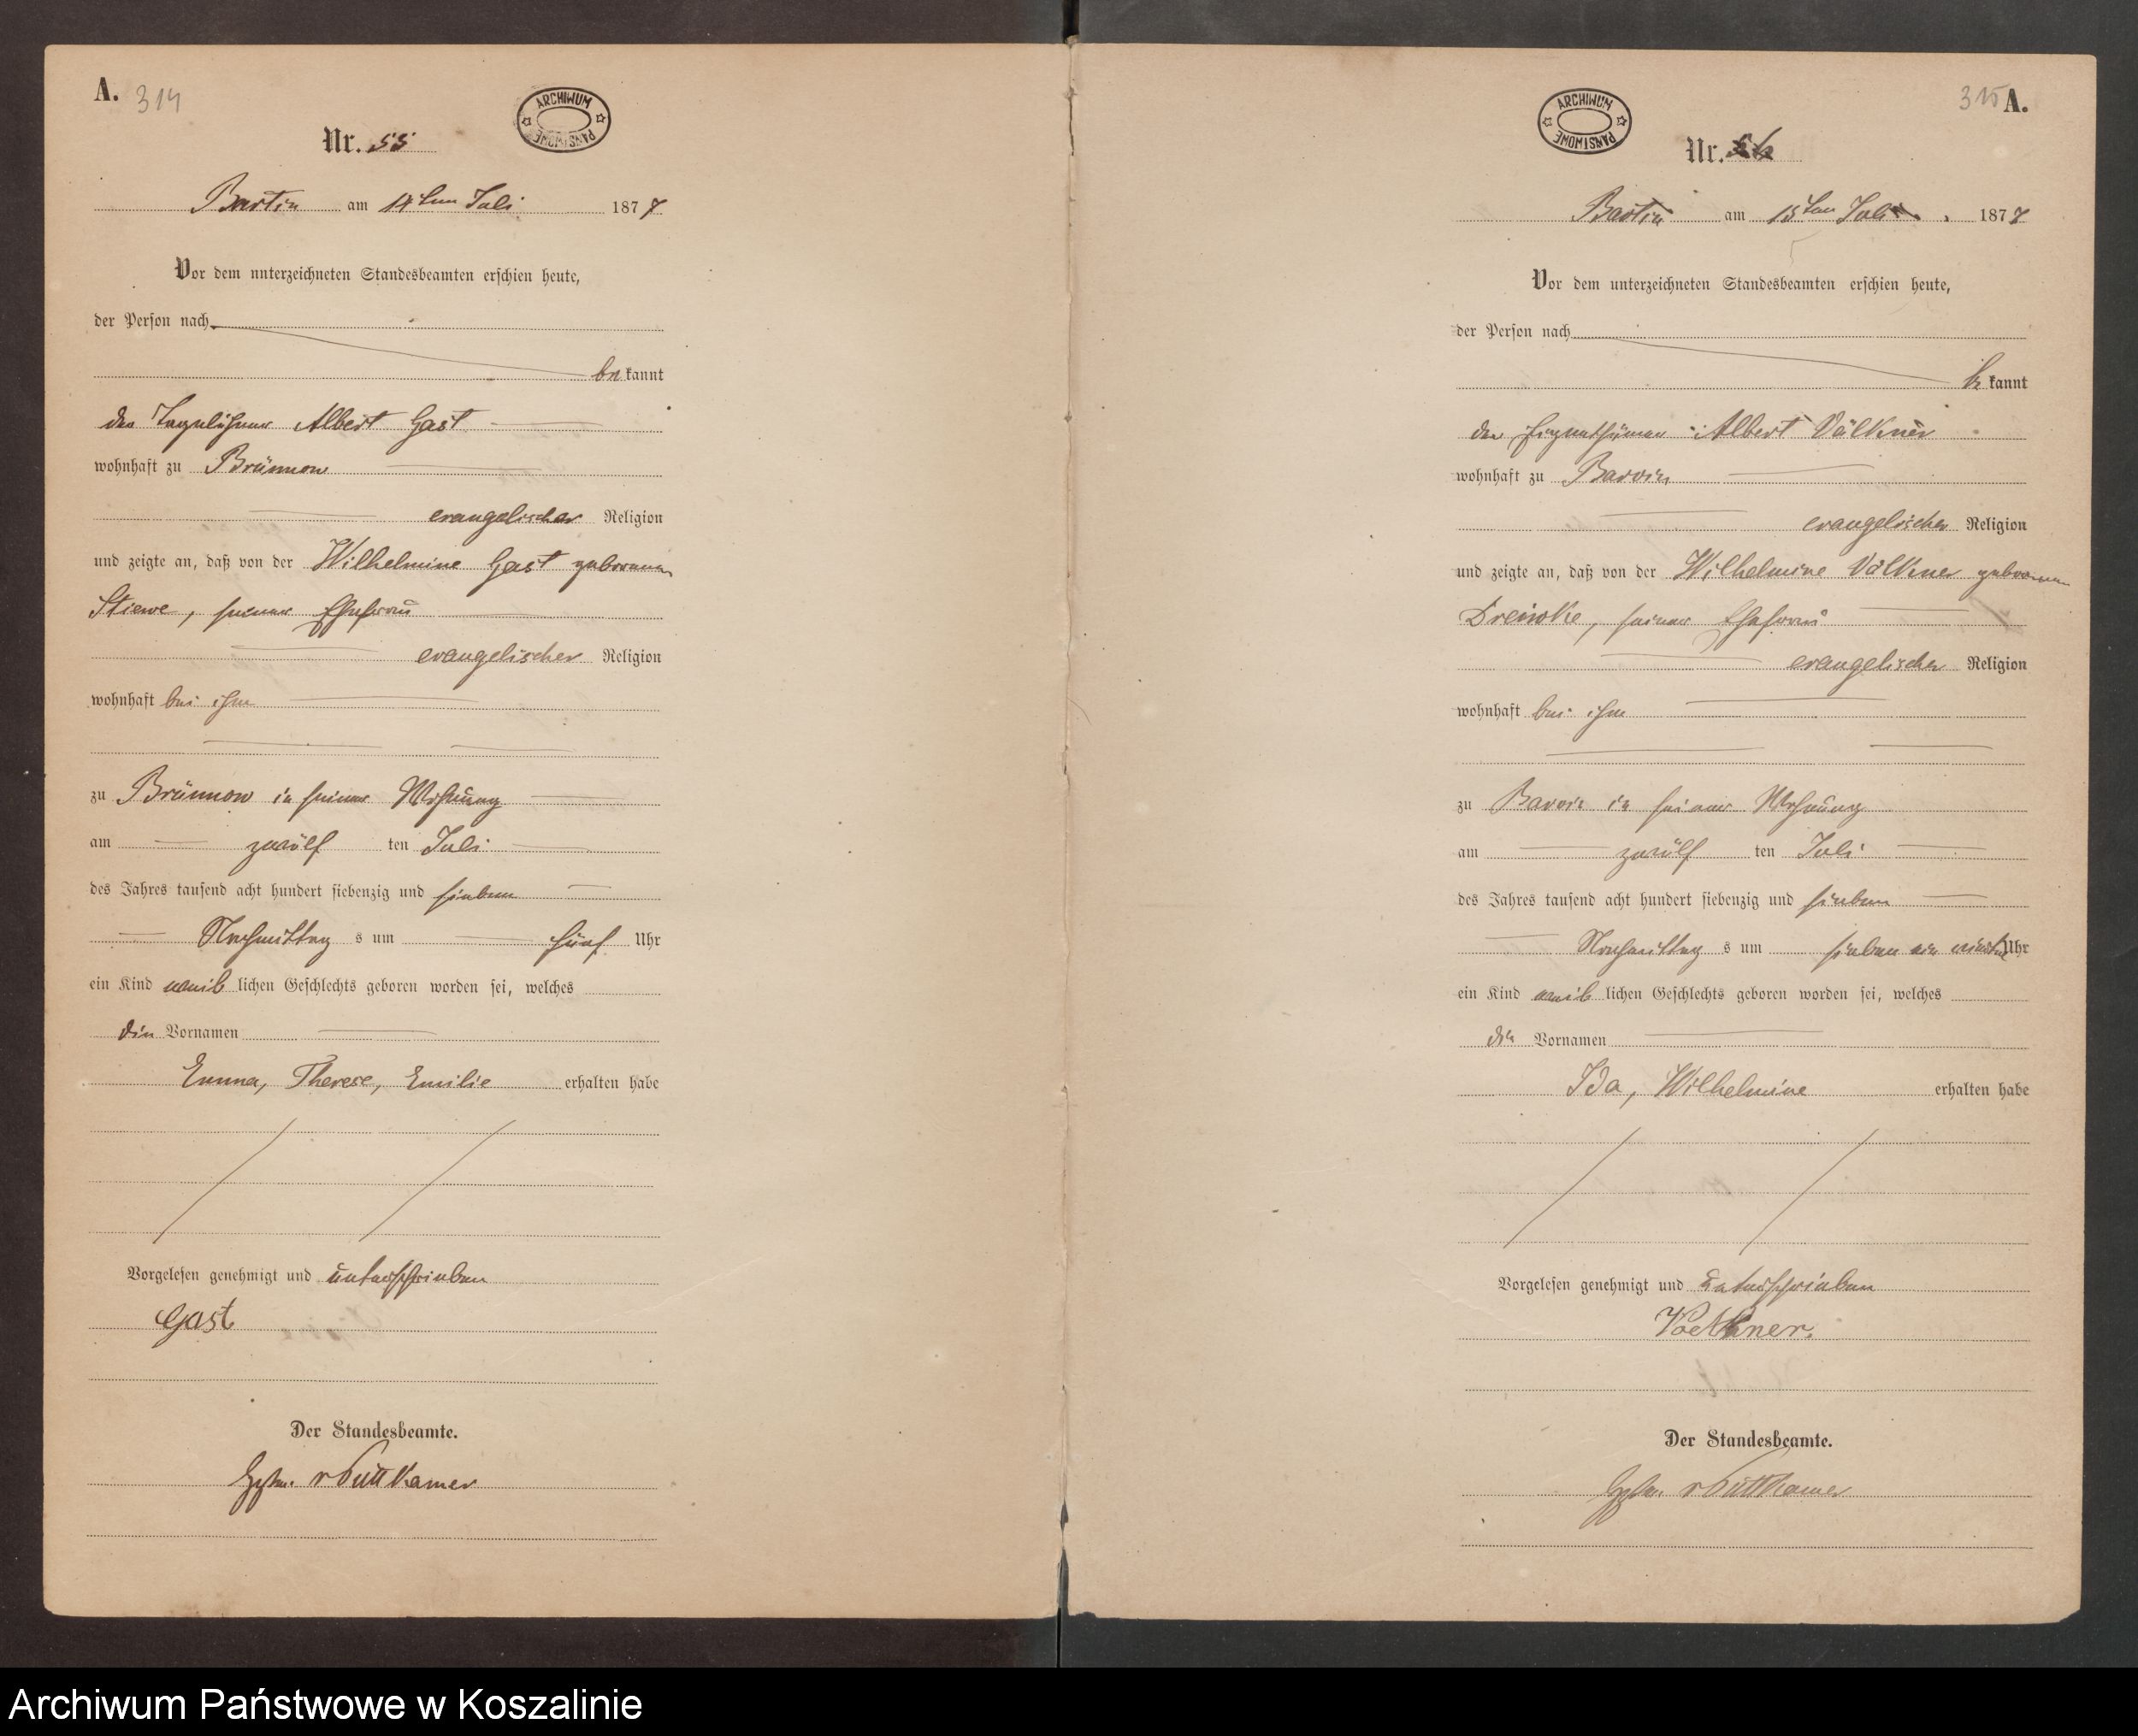 A. 314
ARCHIWUM PAŃSTWOWE
Nr. 55
Bartin am 14ten Juli 1877
Vor dem unterzeichneten Standesbeamten erschien heute,
der Person nach
bekannt
der Tagelöhner Albert Gast
wohnhaft zu Brünnow
evangelischer Religion
und zeigte an, daß von der Wilhelmine Gast geborenen
Stiewe, seiner Ehefrau
evangelischer Religion
wohnhaft bei ihm
zu Brünnow in seiner Wohnung
am zwölf ten Juli
des Jahres tausend acht hundert siebenzig und sieben
Nachmittag s um fünf Uhr
ein Kind weib lichen Geschlechts geboren worden sei, welches
die Vornamen
Emma, Therese, Emilie erhalten habe
Vorgelesen genehmigt und unterschrieben
Gast
Der Standesbeamte.
v Puttkamer
315 A.
ARCHIWUM PAŃSTWOWE
Nr. 56
Bartin am 15ten Juli 1877
Vor dem unterzeichneten Standesbeamten erschien heute,
der Person nach
bekannt
der Eigenthümer Albert Völkner
wohnhaft zu Barvin
evangelischer Religion
und zeigte an, daß von der Wilhelmine Völkner geborenen
seiner Ehefrau
evangelischer Religion
wohnhaft bei ihm
zu Barvin in seiner Wohnung
am zwölf ten Juli
des Jahres tausend acht hundert siebenzig und sieben
Nachmittag s um sieben ein viertel Uhr
ein Kind weib lichen Geschlechts geboren worden sei, welches
die Vornamen
Ida, Wilhelmine erhalten habe
Vorgelesen genehmigt und unterschrieben
Voelkner.
Der Standesbeamte.
v Puttkamer
Archiwum Państwowe w Koszalinie